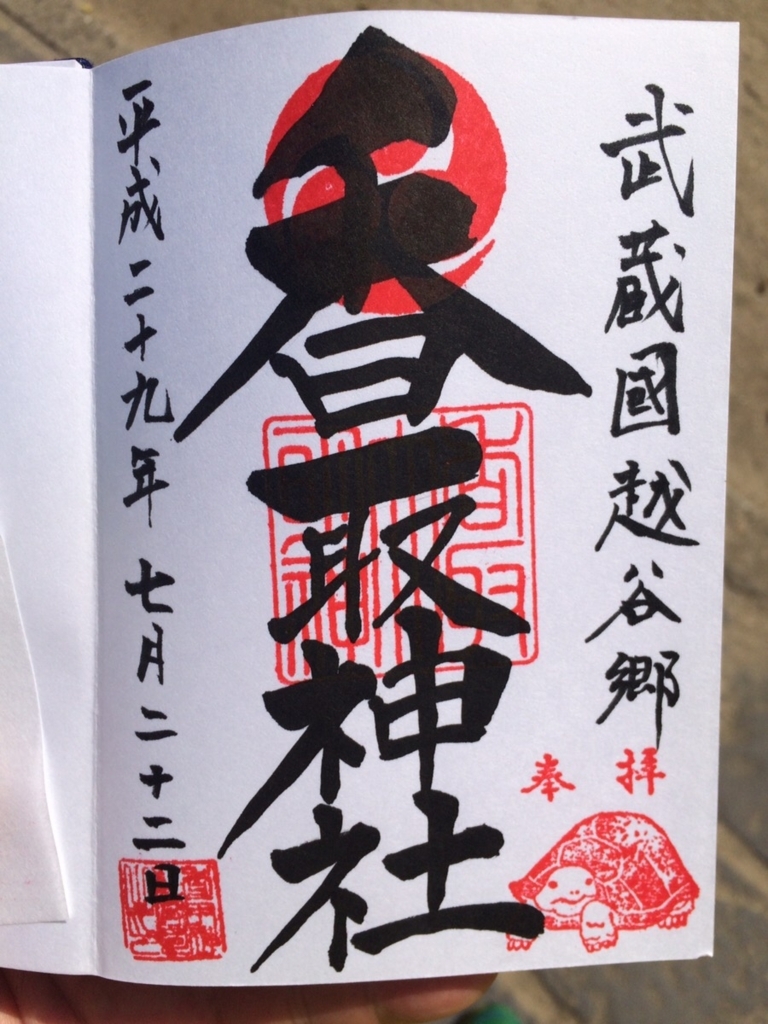 武蔵國越谷郷
奉拝
香取神社
平成二十九年七月二十二日